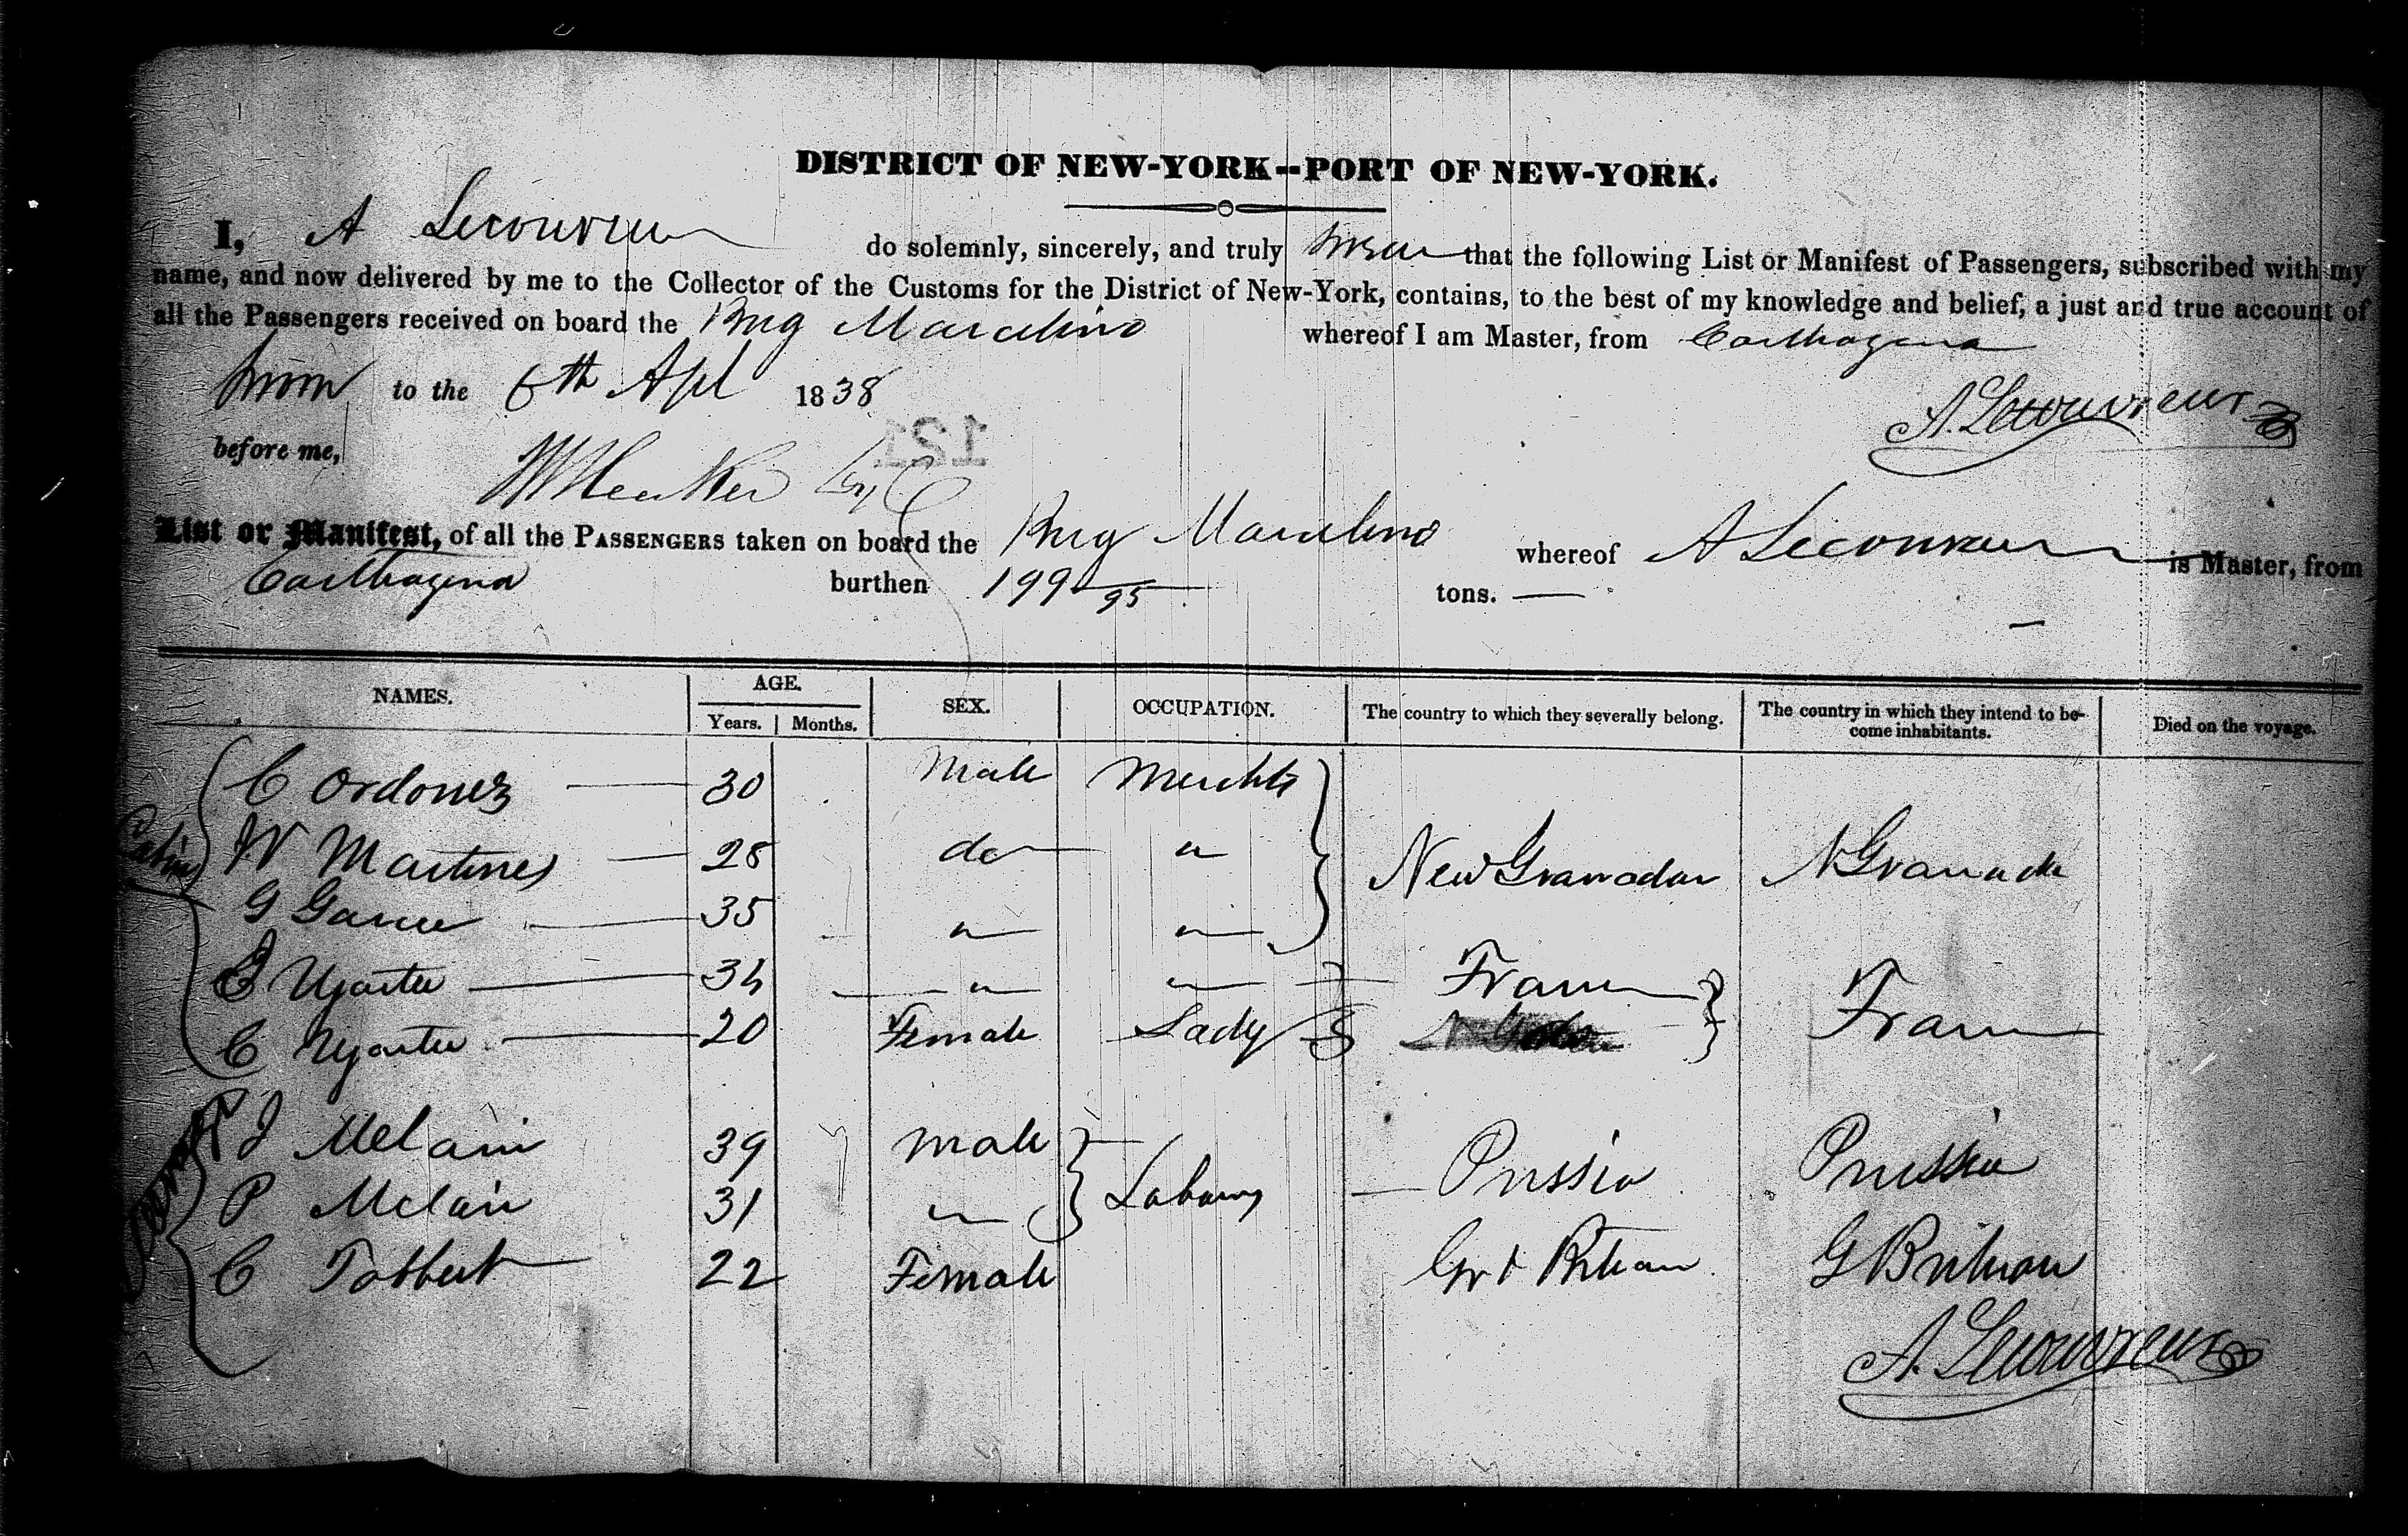 DISTRICT OF NEW-YORK--PORT OF NEW-YORK.
I, A Lecouvreur do solemnly, sincerely, and truly swear that the following List or Manifest of Passengers, subscribed with my
name, and now delivered by me to the Collector of the Customs for the District of New-York, contains, to the best of my knowledge and belief, a just and true account of
all the Passengers received on board the Brig Marcelino whereof I am Master, from Carthagena
Sworn to the 6th Apl 1838
A. Lecouvreur
before me,
List or Manifest, of all the PASSENGERS taken on board the Brig Marcelino whereof A Lecouvreur is Master, from
Carthagena burthen 199 95 tons.
NAMES. AGE. SEX. OCCUPATION. The country to which they severally belong. The country in which they intend to be-
come inhabitants. Died on the voyage.
Years. Months.
Cabin
C Ordonez 30 Male Merchts
W Martines 28 do "
New Granada N Granada
G Garcee 35 " "
Ujartee 34 " " France
C Ujartee 20 Female Lady France
J Melain 39 Male
Prussia Prussia
P Melain 31 " Labours
C Tolbert 22 Female Grt Britain G Britain
A. Lecouvreur